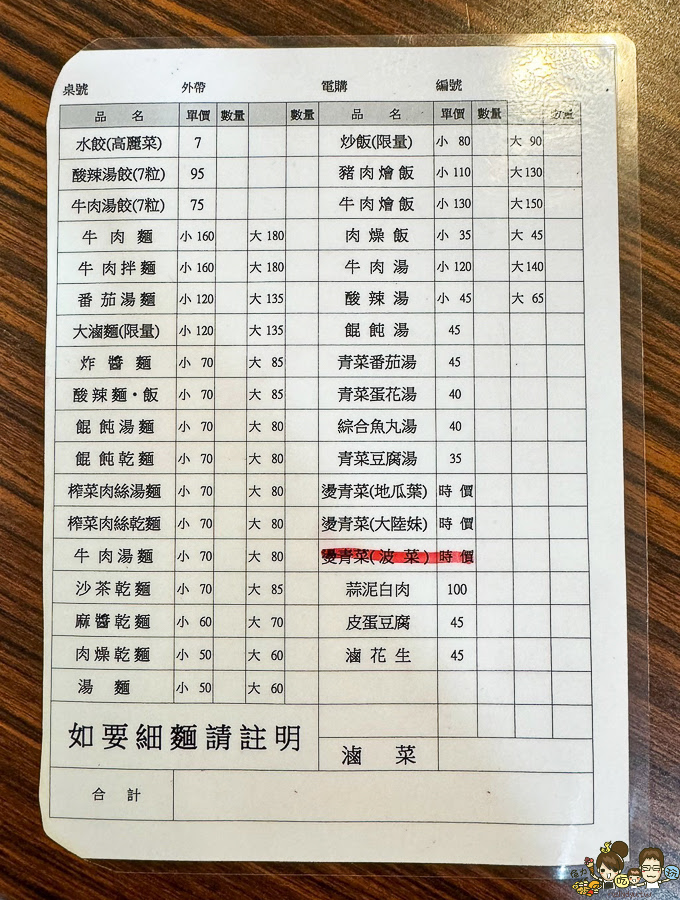 桌號 外帶 電購 編號
品 名 單價 數量 數量 品 名 單價 數量 數量
水餃(高麗菜) 7 炒飯(限量) 小 80 大 90
酸辣湯餃(7粒) 95 豬肉燴飯 小 110 大 130
牛肉湯餃(7粒) 75 牛肉燴飯 小 130 大 150
牛肉麵 小 160 大 180 肉燥飯 小 35 大 45
牛肉拌麵 小 160 大 180 牛肉湯 小 120 大 140
番茄湯麵 小 120 大 135 酸辣湯 小 45 大 65
大滷麵(限量) 小 120 大 135 餛飩湯 45
炸醬麵 小 70 大 85 青菜番茄湯 45
酸辣麵・飯 小 70 大 85 青菜蛋花湯 40
餛飩湯麵 小 70 大 80 綜合魚丸湯 40
餛飩乾麵 小 70 大 80 青菜豆腐湯 35
榨菜肉絲湯麵 小 70 大 80 燙青菜(地瓜葉) 時價
榨菜肉絲乾麵 小 70 大 80 燙青菜(大陸妹) 時價
牛肉湯麵 小 70 大 80 燙青菜(波菜) 時價
沙茶乾麵 小 70 大 85 蒜泥白肉 100
麻醬乾麵 小 60 大 70 皮蛋豆腐 45
肉燥乾麵 小 50 大 60 滷花生 45
湯麵 小 50 大 60
如要細麵請註明
滷菜
合計